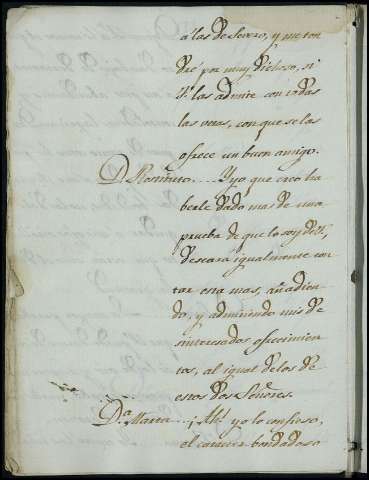 á las de Severo, y me ten
dré por muy dichoso, si
V. las admite con todas
las veras, con que se las
ofrece un buen amigo.
D. Ramiro.... Y yo que creo ha
berle dado mas de una
prueba de que lo soy de V.,
deseara igualmente con
tar esta mas, añadien
do, y admitiendo mis de
sinteresados ofrecimien
tos, al igual de los de
estos dos Señores.
D.ª Marta.... ¡Ah! yo lo confieso,
el caracter bondadoso